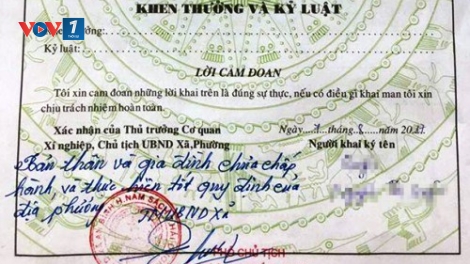 VOV1
KHEN THƯỞNG VÀ KỶ LUẬT
thưởng:
Kỷ luật:
LỜI CAM ĐOAN
Tôi xin cam đoan những lời khai trên là đúng sự thực, nếu có điều gì khai man tôi xin
chịu trách nhiệm hoàn toàn.
Xác nhận của Thủ trưởng Cơ quan
Ngày tháng 8 năm 20
Xí nghiệp, Chủ tịch UBND Xã, Phường
Người khai ký tên
Bản thân và gia đình chưa chấp
hành và thực hiện tốt quy định của
địa phương
TM UBND Xã
H. NAM SÁCH
PHÓ CHỦ TỊCH